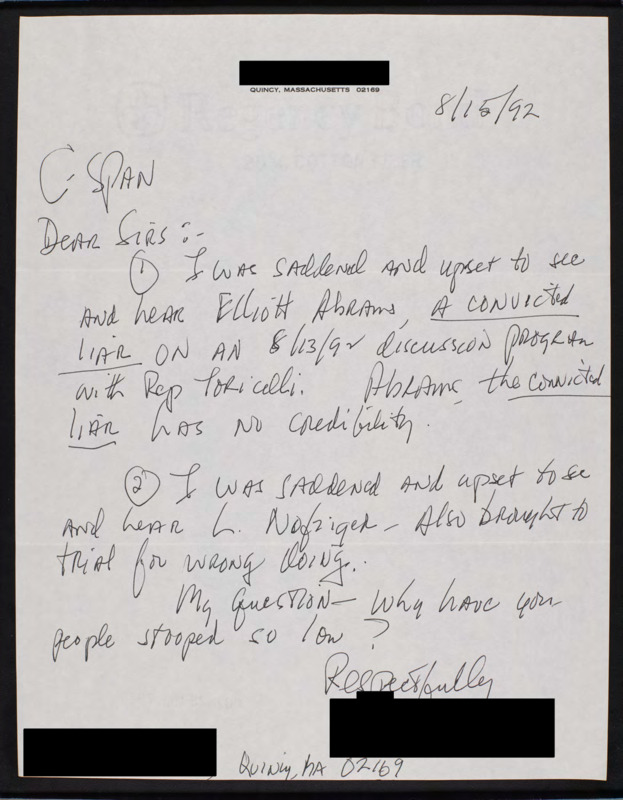 QUINCY, MASSACHUSETTS 02169
8/15/92
C-SPAN
Dear Sirs:-
① I was saddened and upset to see
and hear Elliott Abrams, a convicted
liar on an 8/13/92 discussion program
with Rep Toricelli. Abrams, the convicted
liar has no credibility.
② I was saddened and upset to see
and hear L. Nofziger - Also brought to
trial for wrong doing.
My question - Why have you
people stooped so low?
Respectfully
Quincy, MA 02169